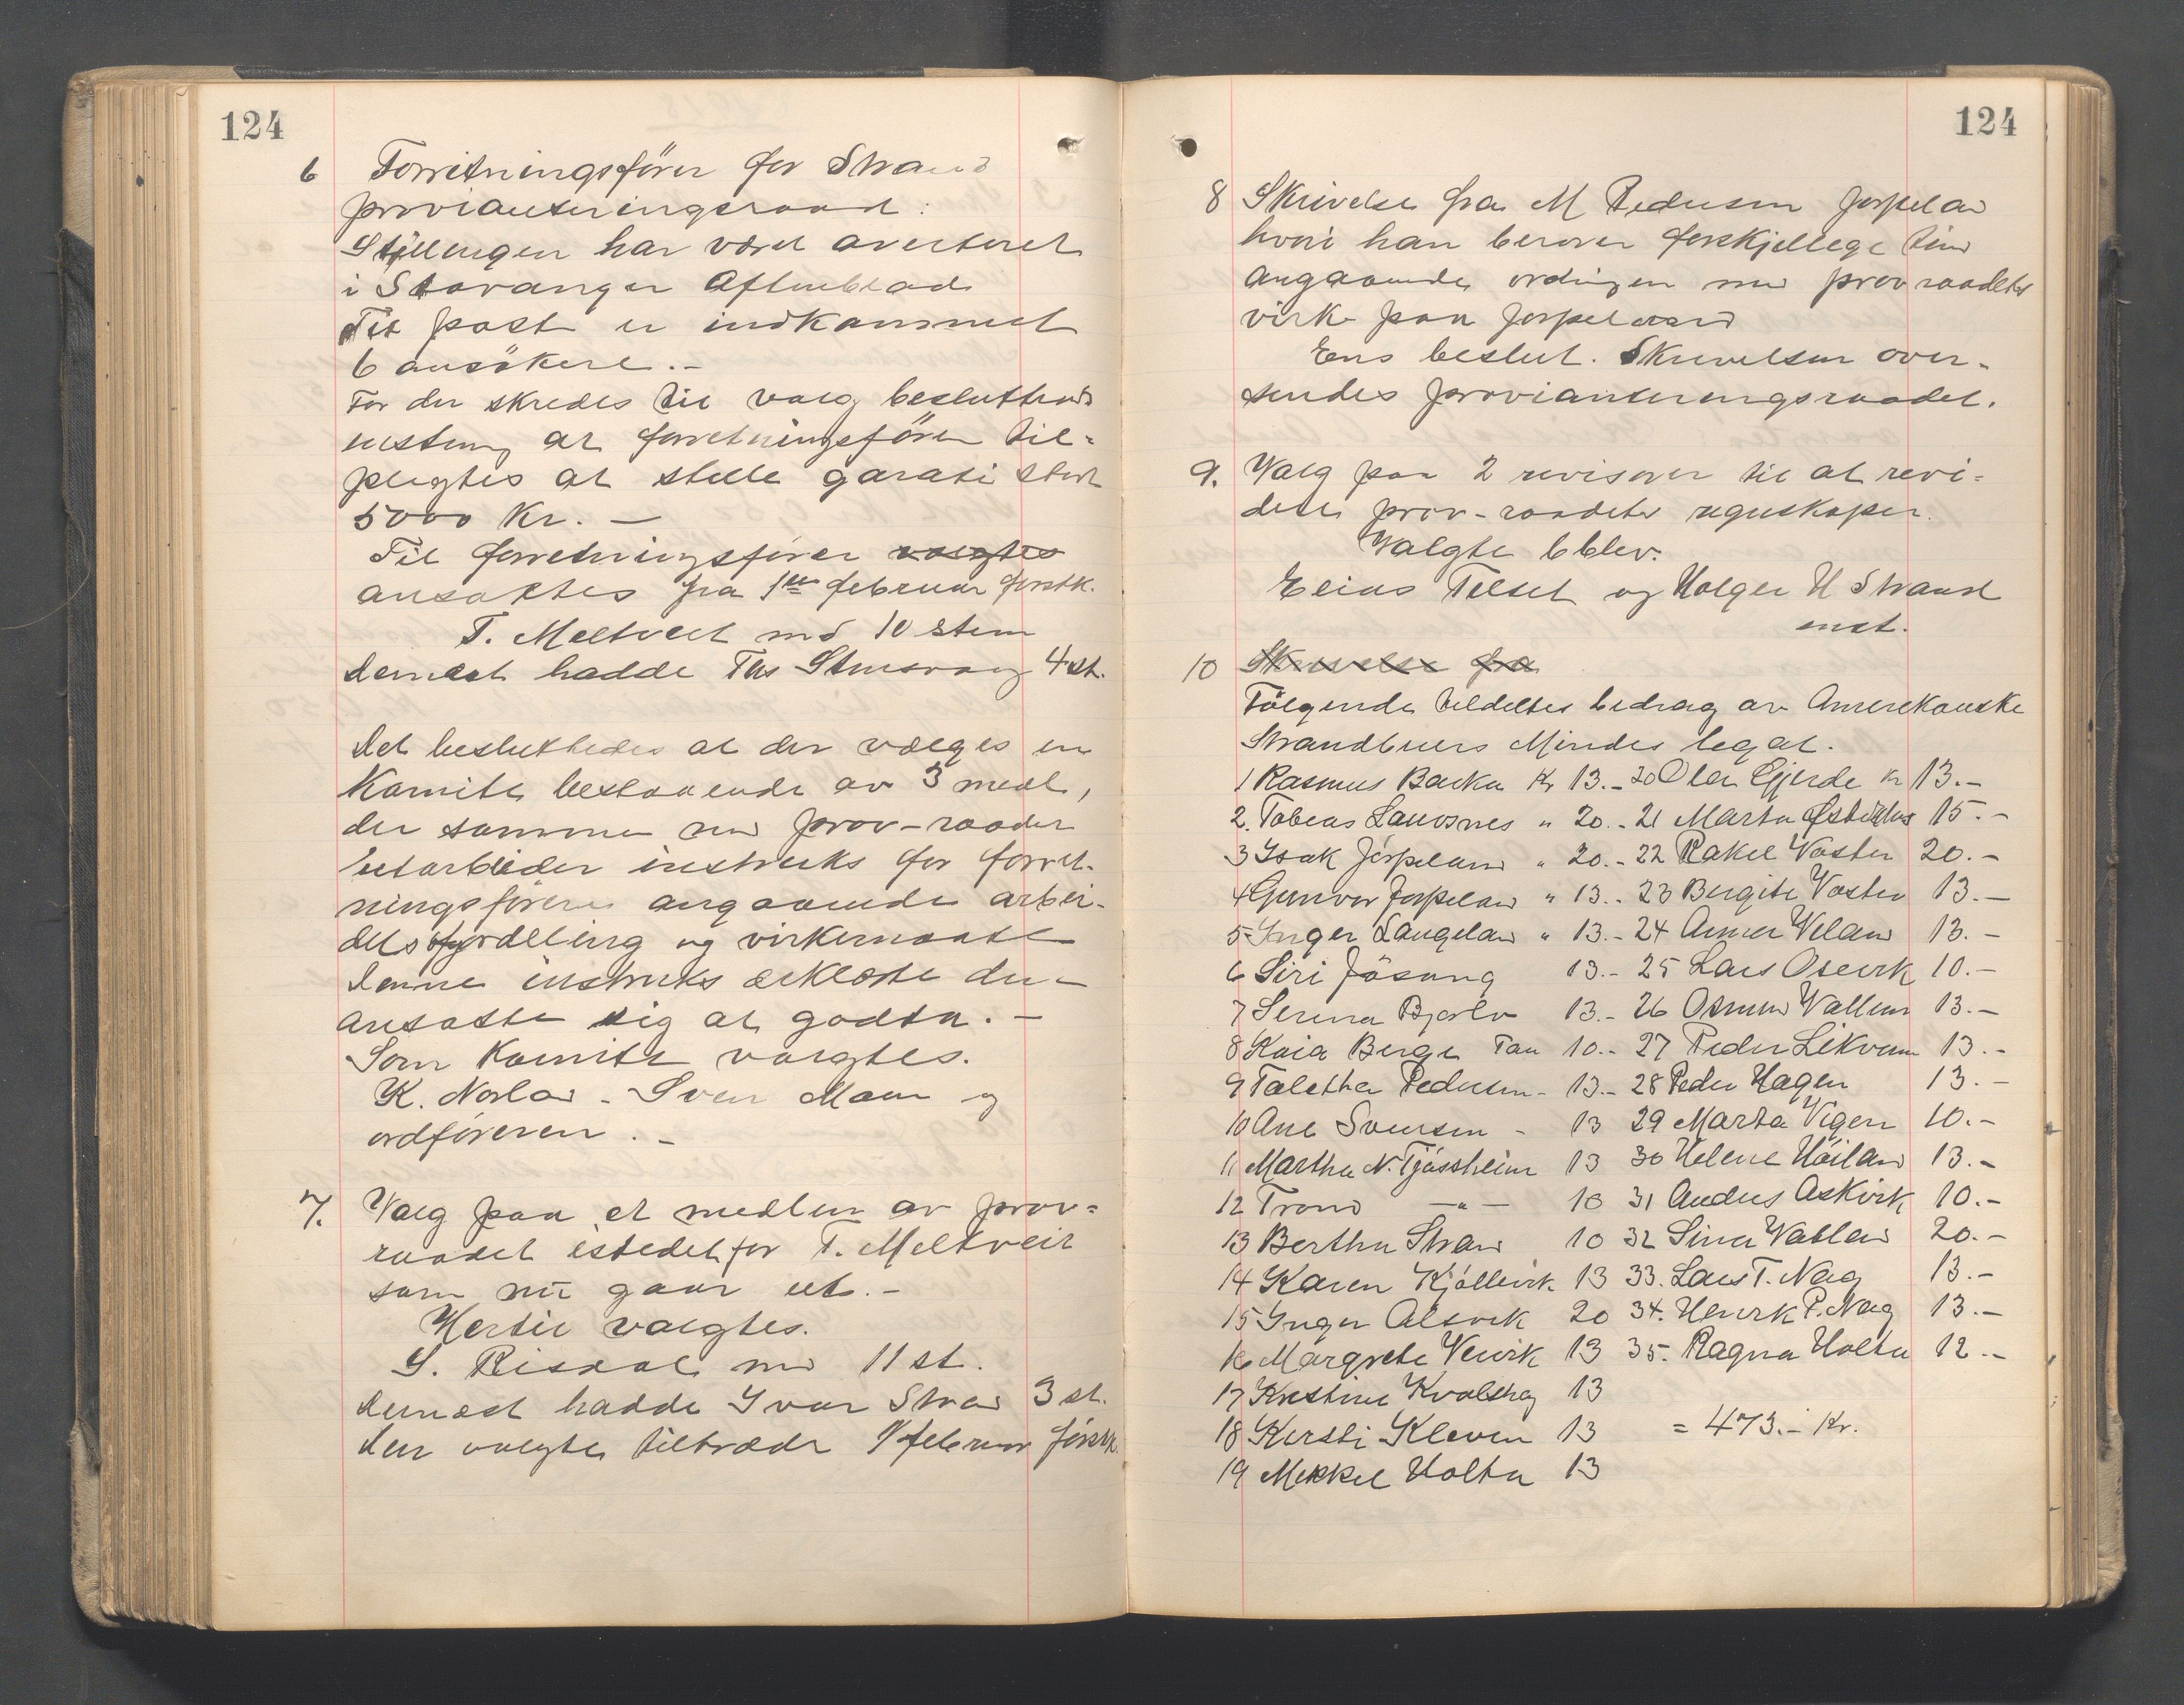 124
6 Forretningsfører for Strand
provianteringsraad:
Stillingen har været averteret
i Stavanger Aftenblad
Til post er indkommet
6 ansökere.-
Før der skredes til valg besluttedes
enstem, at forretningsføren til-
plegtes at stille garati stor
5000 Kr. —
Til forretningsfører valgtes
ansattes fra 1ste februar førstk.
T. Meltveit med 10 stem
dernest hadde Ths Stensvang 4 st.
Det besluttedes at der vælges en
Komite bestaaende av 3 medl,
der sammen med prov-raadet
utarbeider instruks for forret-
ningsføreren angaaende arbei-
dets fordeling og virkemaate
Denne instruks erklærte den
ansatte sig at godta. -
Som Komite valgtes.
K. Norland - Sven Maan og
ordføreren. -
7. Valg paa et medlem av prov-
raadet istedet for T. Meltveit
som nu gaar ut. -
Hertil valgtes.
S. Risdal med 11 st.
dernæst hadde Ivar Strand 3 st.
den valgte tiltræder 1 februar førstk.
124
8 Skrivelse fra M Pedersen Jørpeland
hvori han berører forskjellege
angaaende ordningen med prov raadets
virke paa Jørpeland
Ens beslut. Skrivelsen over-
sendes provianteringsraadet.
9. Valg paa 2 revisorer til at revi-
dere prov-raadets regnskaper.
Valgte blev.
Elias Telset og Holger H Strand
enst.
10 Skrivelse fra
Følgende tildeltes bidrag av Amerekanske
Strandbuers Mindes legat.
1 Rasmus Barka Kr 13.- 20 Olea Gjerde Kr 13.-
2. Tobias Lauvsnes " 20.- 21 Marta Østerhus 15.-
3 Isak Jørpeland " 20.- 22 Rakel Voster 20.-
4 Gunvor Jørpeland " 13.- 23 Bergite Voster 13.-
5 Inger Langeland " 13.- 24 Anna Veland 13.-
6 Siri Jøsang 13.- 25 Lars Osevik 10.-
7 Serina Bjørlo 13.- 26 Osmund Vallem 13.-
8 Kaia Berge Tau 10.- 27 Peder Likvam 13.-
9 Taletha Pedersen - 13.- 28 Peder Hagen 13.-
10 Ane Svensen - 13 29 Marta Vigen 10.-
11 Martha N. Tjøssheim 13 30 Helene Höiland 13.-
12 Trond —"— 10 31 Anders Askvik 10.-
13 Bertha Strand 10 32 Sina Vatland 20.-
14 Karen Kjøllevik 13 33. Lars T. Nag 13.-
15 Inger Alsvik 20 34. Henrik P. Nag 13.-
16 Margrete Vervik 13 35. Ragna Holta 12.-
17 Kristine Kvalshag 13
18 Kersti Kleven 13 = 473.- Kr.
19 Mikkel Holta 13